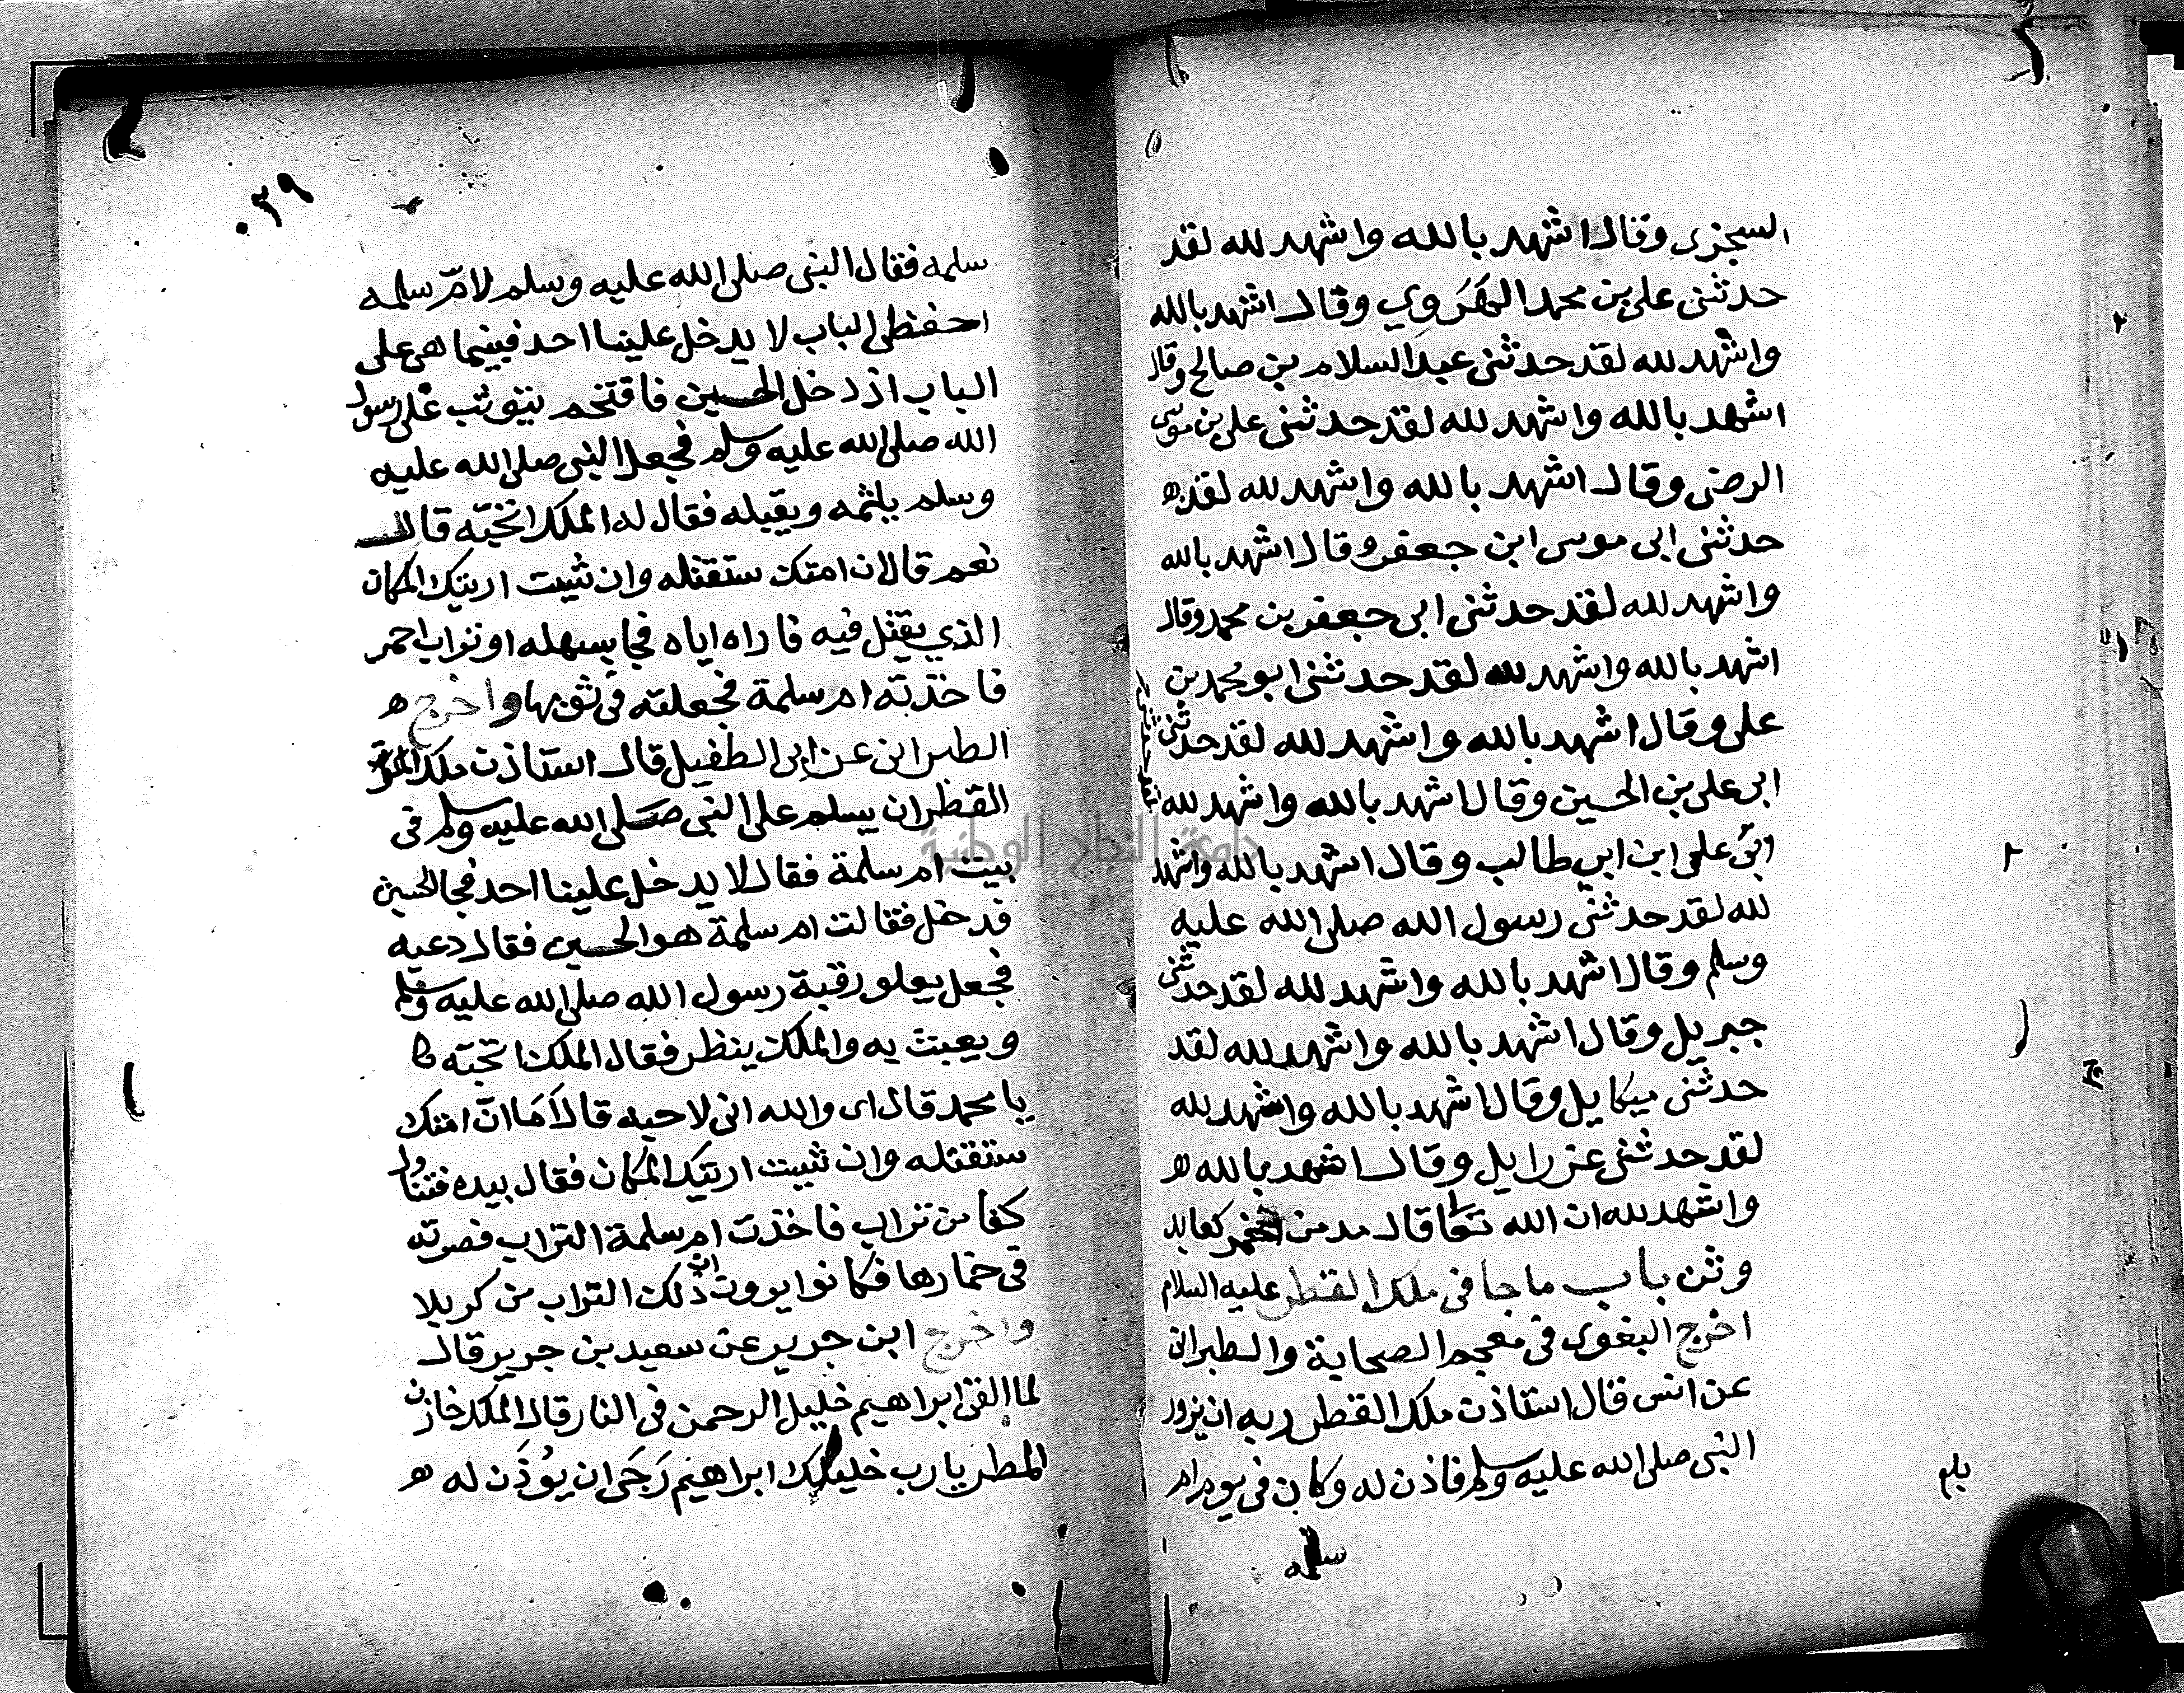 السجزى وقال اشهد بالله واشهد لله لقد
حدثنى على بن محمد الهَرَوي وقال اشهد بالله
واشهد لله لقد حدثنى عبد السلام بن صالح وقال
اشهد بالله واشهد لله لقد حدثنى على بن موسى
الرضى وقال اشهد بالله واشهد لله لقد ه
حدثنى ابى موسى ابن جعفر وقال اشهد بالله
واشهد لله لقد حدثنى ابى جعفر بن محمد وقال
اشهد بالله واشهد لله لقد حدثنى ابو محمد بن
على وقال اشهد بالله واشهد لله لقد حدثنى
ابى على بن الحسين وقال اشهد بالله واشهد لله
ابى على ابن ابي طالب وقال اشهد بالله واشهد
لله لقد حدثنى رسول الله صلى الله عليه
وسلم وقال اشهد بالله واشهد لله لقد حدثنى
جبريل وقال اشهد بالله واشهد لله لقد
حدثنى ميكايل وقال اشهد بالله واشهد لله
لقد حدثنى عزرايل وقال اشهد بالله ه
واشهد لله ان الله تعا قال مدمن الخمر كعابد
وثن باب ماجا فى ملك القطر عليه السلام
اخرج البغوى فى معجم الصحابة والطبرانى
عن انس قال استاذن ملك القطر ربه ان يزور
النبى صلى الله عليه وسلم فاذن له وكان فى يوم ام
سلمه
بلغ
٣٩
سلمه فقال النبى صلى الله عليه وسلم لامّ سلمه
احفظى الباب لا يدخل علينا احد فبينما هى على
الباب اذ دخل الحسين فاقتحم يتوثب على رسول
الله صلى الله عليه وسلم فجعل النبى صلى الله عليه
وسلم يلثمه ويقبله فقال له الملك اتحبّه قال
نعم قال ان امتك ستقتله وان شيت اريتك المكان
الذي يقتل فيه فاراه اياه فجا بسهله او تراب احمر
فاخذته ام سلمة فجعلته فى ثوبها واخرج ه
الطبرانى عن ابى الطفيل قال استاذن ملك
القطر ان يسلم على النبى صلى الله عليه وسلم فى
بيت ام سلمة فقال لا يدخل علينا احد فجا الحسين
فدخل فقالت ام سلمة هو الحسين فقال دعيه
فجعل يعلو رقبة رسول الله صلى الله عليه وسلم
ويعبث به والملك ينظر فقال الملك اتحبّه
يا محمد قال اى والله انى لاحبه قال اَمَا انّ امتك
ستقتله وان شيت اريتك المكان فقال بيده فتناول
كفا من تراب فاخذت ام سلمة التراب فصرته
فى خمارها فكانوا يرون ان ذلك التراب من كربلا
واخرج ابن جرير عن سعيد بن جرير قال
لما القى ابراهيم خليل الرحمن فى النار قال الملك خازن
المطر يا رب خليلك ابراهيم رَجَى ان يُوذَن له ه
جامعة النجاح الوطنية